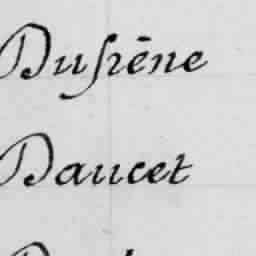 Dufrēne
Daucet